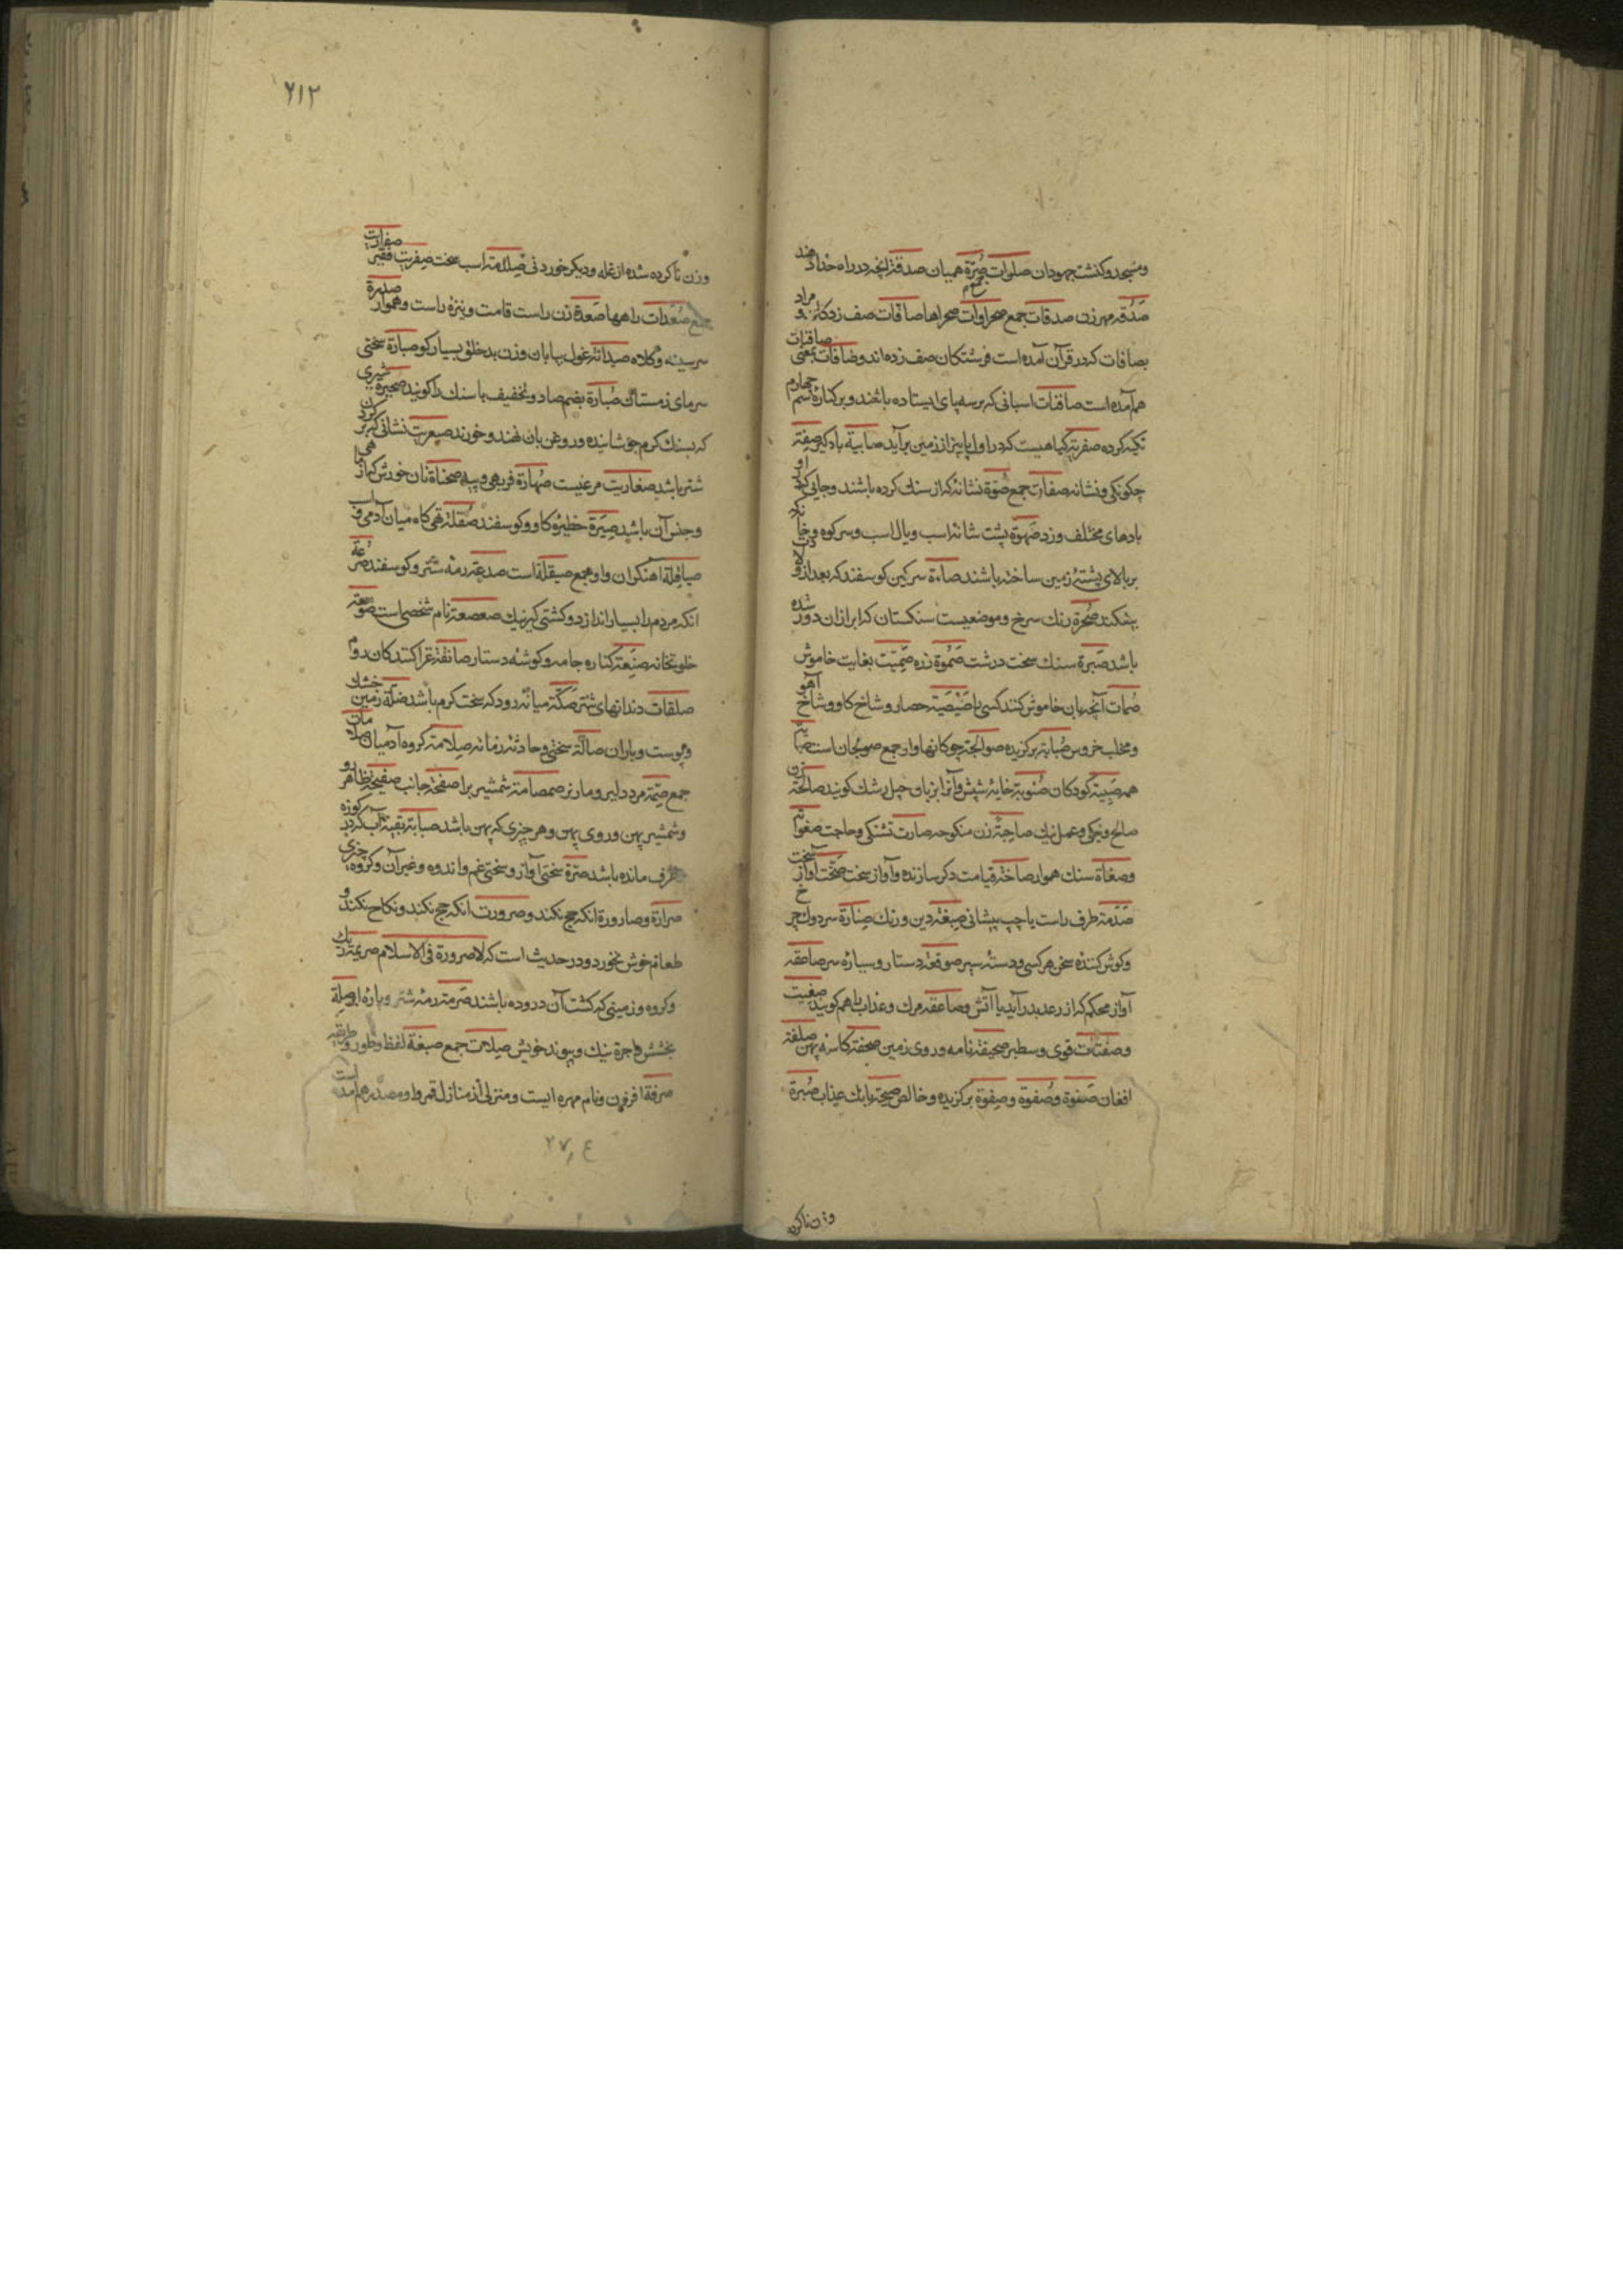 ومسجد وکنشت جهودان صلوات صُرّة همیان صدقة انچه در راه خدا دهند
صَدُقه مهر زن صدقات جمع صحراوات صحراها صافات صف زدکان و مراد
بصافات که در قرآن آمده است فرشتکان صف زده اند و صافات بمعنی صافنات
هم آمده است صافنات اسبانی که بر سه پای ایستاده باشند و بر کنارهٔ سم چهارم
تکیه کرده صفریّه کیاهیست که در اول پاییز از زمین برآید صابیة بادکیر صفة
چکونکی و نشانه صفات جمع صُوّة نشانه که از سنك کرده باشند و جایی که در او
بادهای مختلف وزد صَهوة پشت شانهٔ اسب و یال اسب و سر کوه و
بر بالای پشتهٔ زمین ساخته باشند صاءة سرکین کوسفند که بعد از
بیفکند صُحرة رنك سرخ و موضعیست سنکستان که ابر ازان دور شده
باشد صَبرة سنك سخت درشت صَمُوة زده صِمّیت بغایت خاموش
صُمات آنچه بدان خاموش کنند کسی را صیصیة حصار و شاخ کاو و شاخ آهو
ومخلب خروس صُیابة برکزیده صوالجة چوکانها و او جمع صولجان است
همه صَبِیة کودکان خایهٔ شپش وآنرا بزبان جیل رشك کویند صالحة
صالح و نیکی و عمل نیك صاحِبة زن منکوحه صارت تشنکی و حاجت
وصفاة سنك هموار صاخّة قیامت و کر سازنده و آواز سخت صخّت آواز سخت
صَدَمة طرف راست یا چپ پیشانی صِبغة دین و رنك صِنارة سر دوك
وکوش کننده سخن هر کسی و دستهٔ سپر صوقعة دستار و سر صاعقه
آواز محکم که از رعد بدر آید با آتش و صاعقه مرك و عذاب را هم کویند
وصفتات قوی و سطبر صحیفة نامه و روی زمین صحفة کاسهٔ پهن صلقة
افغان صَفوة وصُفوة وصِفوة برکزیده و خالص صیحة بانك عذاب صُبرة
وزن ناکرده
۶۱۲
وزن ناکرده شده از غله و دیکر خوردنی صِلدمة اسب سخت صِفریت فقیر صفاریت
جمع صَعَدات راهها صَعدة زن راست قامت و نیزهٔ راست و هموار
سر سینه و کلاه صیدانة غول بیابان و زن بدخلق بسیار کو صبارّة سختی
سرمای زمستان صُبارة بضم صاد و تخفیف با سنك را کویند صحیرة شیری
که بسنك کرم جوشانیده و روغن بان نهند و خورند صیعریت نشانی که بر کردن
شتر باشد صفاریت مرغیست صُهارة فربهی و پیه صحناة نان خورش که از
وجنس آن باشد صِیَرة حظیرهٔ کاو و کوسفند صُقلة تهی کاه میان آدمی و
صیاقِلة آهنکران و او جمع صیقلة است صدعة رمهٔ شتر و کوسفند صُرَعة
انکه مردم را بسیار اندازد و کشتی کیر نیك صعصعة نام شخصی است صومعه
خلوتخانه صَنِعة کناره جامه و کوشهٔ دستار صائفة غزا کنندکان روم
صلقات دندانهای شتر صَکّة میانهٔ روز که سخت کرم باشد صَلّة زمین خشك
وپوست و باران صالّة سختی و حادثهٔ زمانه صِلامة کروه آدمیان
جمع صِمّة مرد دلیر و مار نر صمصامة شمشیر برا صفحة جانب صفیحة ظاهر رو
وشمشیر پهن و روی پهن و هر چیزی که پهن باشد صبابة بقیهٔ آب که در کوزه
وظرف مانده باشد صَرّة سختی آواز و سختی غم و اندوه و غیر آن و کروه چیزی
صرارة و صارورة انکه حج نکند و صرورت انکه حج نکند و نکاح نکند و
طعام خوش نخورد و در حدیث است که لا صرورة فی الاسلام صریمة ریك
وکروه و زمینی که کشت آن دروده باشند صَرمة رمهٔ شتر و پارهٔ ابر صِلة
بخشش و اجرة نیك و پیوند خویش صِلات جمع صیغة لفظ و طور و طریقه
صرفة افزون و نام مهره ایست و منزلی از منازل قمر و او مصدر هم آمده است
۲۷٫۴